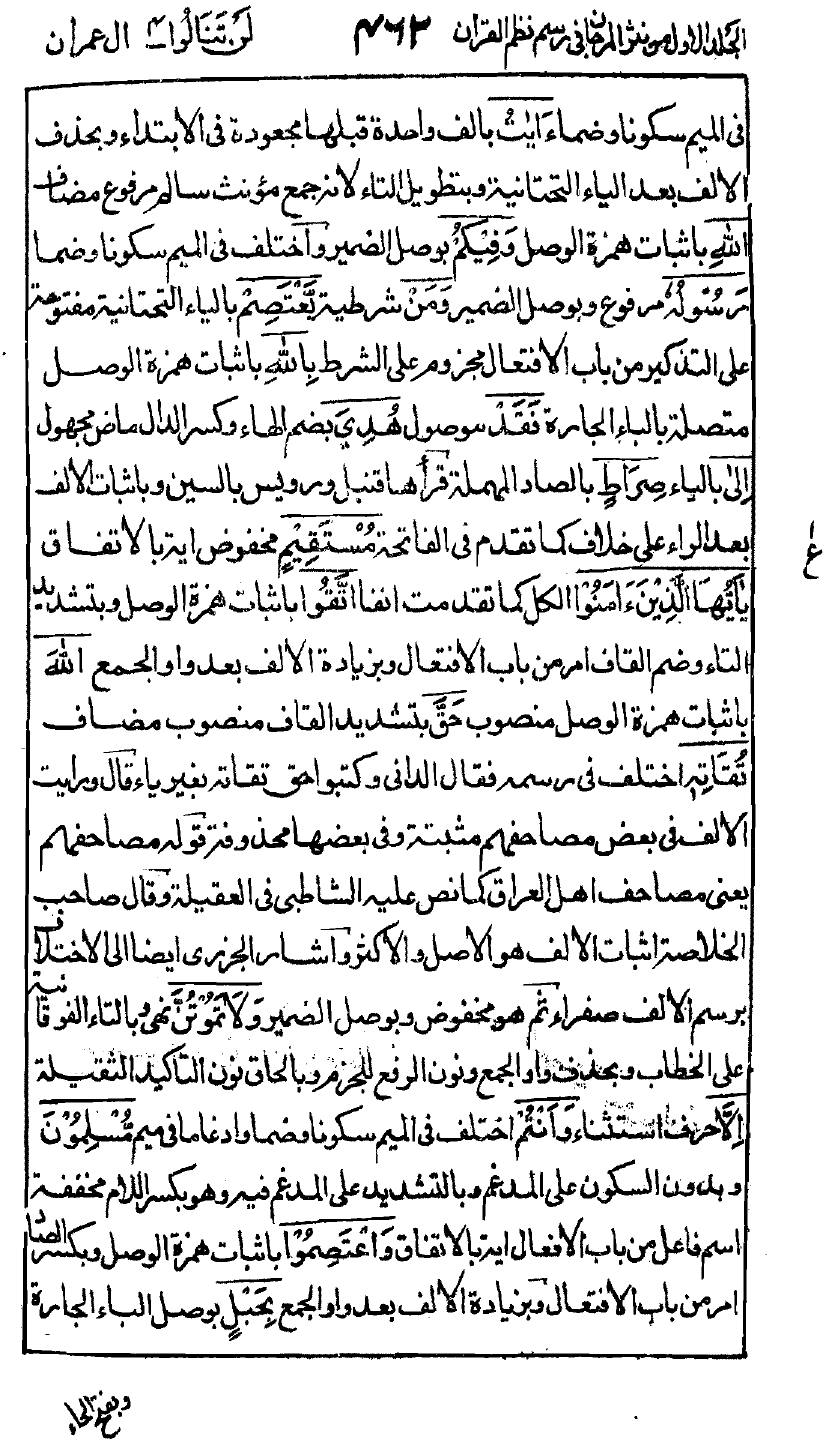 الجلد الاول من نثر المرجان فى رسم نظم القران ٤٦٢ لن تنالوا ٤ ال عمران
فى الميم سكونا وضما ءَايٰتُ بالف واحدة قبلها مجعودة فى الابتداء وبحذف
الالف بعد الياء التحتانية وبتطويل التاء لانه جمع مؤنث سالم مرفوع مضاف
اللهِ باثبات همزة الوصل وَفِيْكُمْ بوصل الضمير واختلف فى الميم سكونا وضما
رَسُوْلُهٗ مرفوع وبوصل الضمير وَمَنْ شرطية يَّعْتَصِمْ بالياء التحتانية مفتوحة
على التذكير من باب الافتعال مجزوم على الشرط بِاللهِ باثبات همزة الوصل
متصلة بالباء الجارة فَقَدْ موصول هُدِيَ بضم الهاء وكسر الدال ماض مجهول
اِلىٰ بالياء صِرَاطٍ بالصاد المهملة قرأها قنبل ورويس بالسين وباثبات الالف
بعد الراء على خلاف كما تقدم فى الفاتحة مُسْتَقِيْمٍ مخفوض اية بالاتفاق
ع
يٰاَيُّهَا الَّذِيْنَ ءَامَنُوْا الكل كما تقدمت انفا اتَّقُوا باثبات همزة الوصل وبتشديد
التاء وضم القاف امر من باب الافتعال وبزيادة الالف بعد واو الجمع اللهَ
باثبات همزة الوصل منصوب حَقَّ بتشديد القاف منصوب مضاف
تُقَاتِهٖ اختلف فى رسمه فقال الدانى وكتبوا حق تقاته بغير ياء قال ورايت
الالف فى بعض مصاحفهم مثبتة وفى بعضها محذوفة قوله مصاحفهم
يعنى مصاحف اهل العراق كما نص عليه الشاطبى فى العقيلة وقال صاحب
الخلاصة اثبات الالف هو الاصل والاكثر واشار الجزرى ايضا الى الاختلاف
برسم الالف صفراء ثم هو مخفوض وبوصل الضمير وَلَا تَمُوْتُنَّ نهى وبالتاء الفوقانية
على الخطاب وبحذف واو الجمع ونون الرفع للجزم وبالحاق نون التاكيد الثقيلة
اِلَّا حرف استثناء وَاَنْتُمْ اختلف فى الميم سكونا وضما وادغاما فى ميم مُّسْلِمُوْنَ
وبدون السكون على المدغم وبالتشديد على المدغم فيه وهو بكسر اللام مخففة
اسم فاعل من باب الافعال اية بالاتفاق وَاعْتَصِمُوْا باثبات همزة الوصل وبكسر الصاد
امر من باب الافتعال وبزيادة الالف بعد واو الجمع بِحَبْلِ بوصل الباء الجارة
وبفتح الحاء